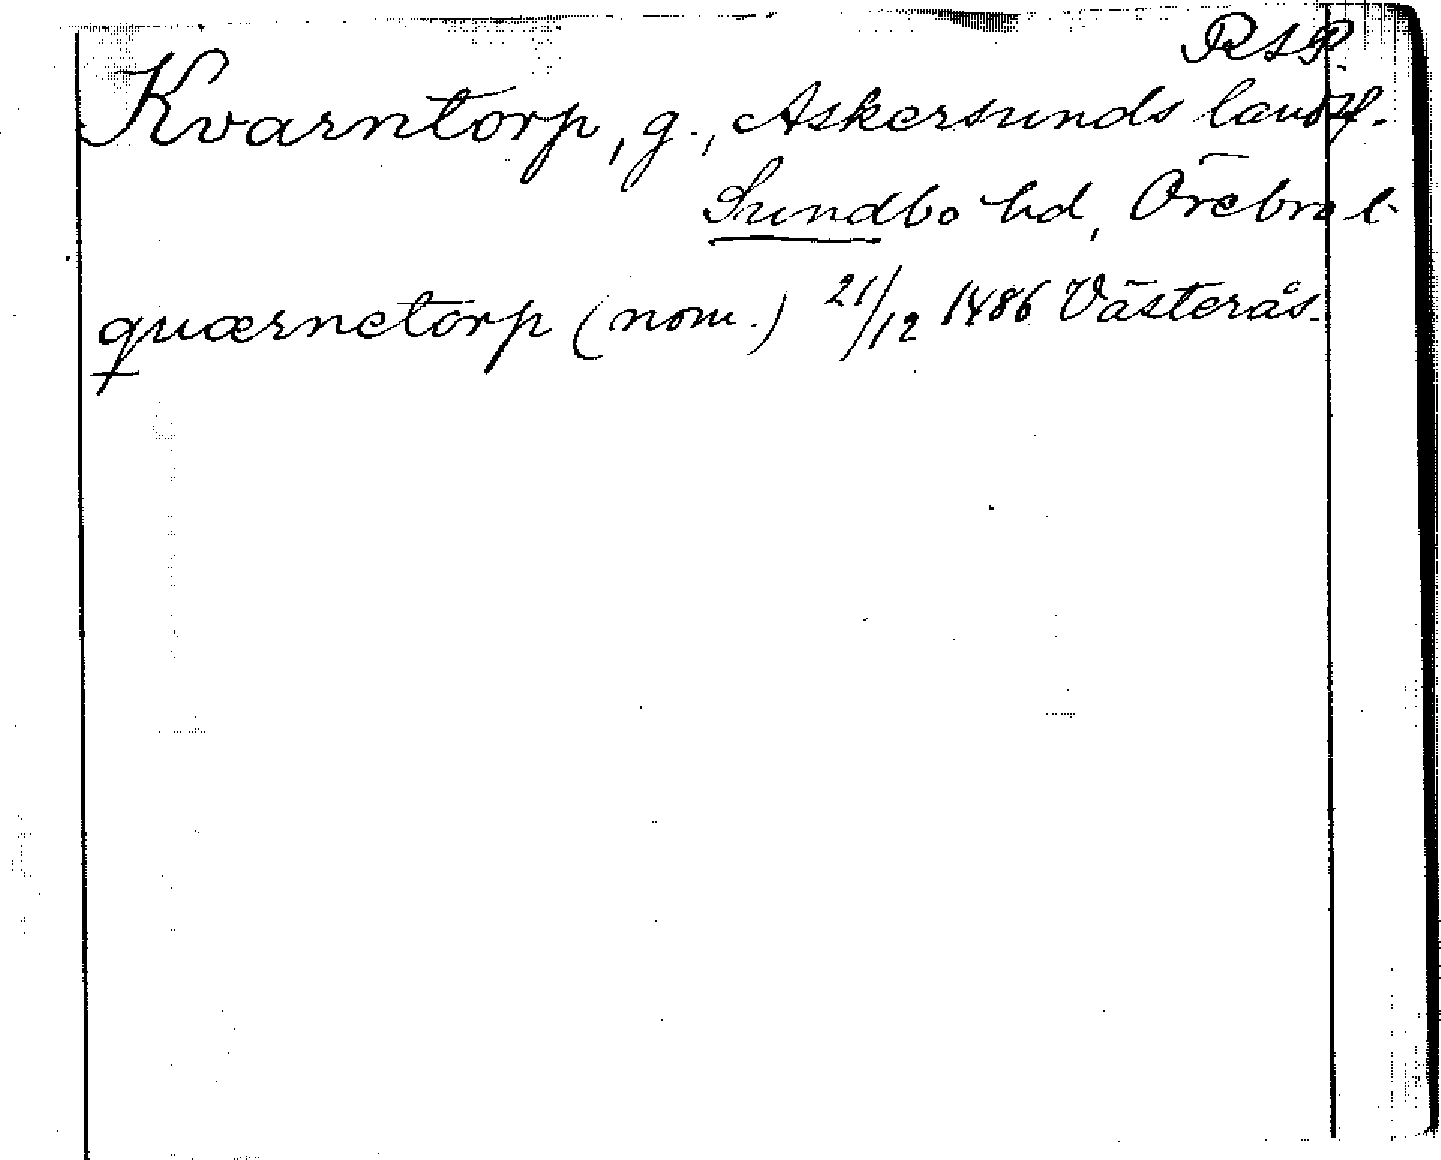 RAP.
Kvarntorp, g., Askersunds landsf.
Sundbo hd, Örebro l.
quærnetorp (nom.) 21/12 1486 Västerås.